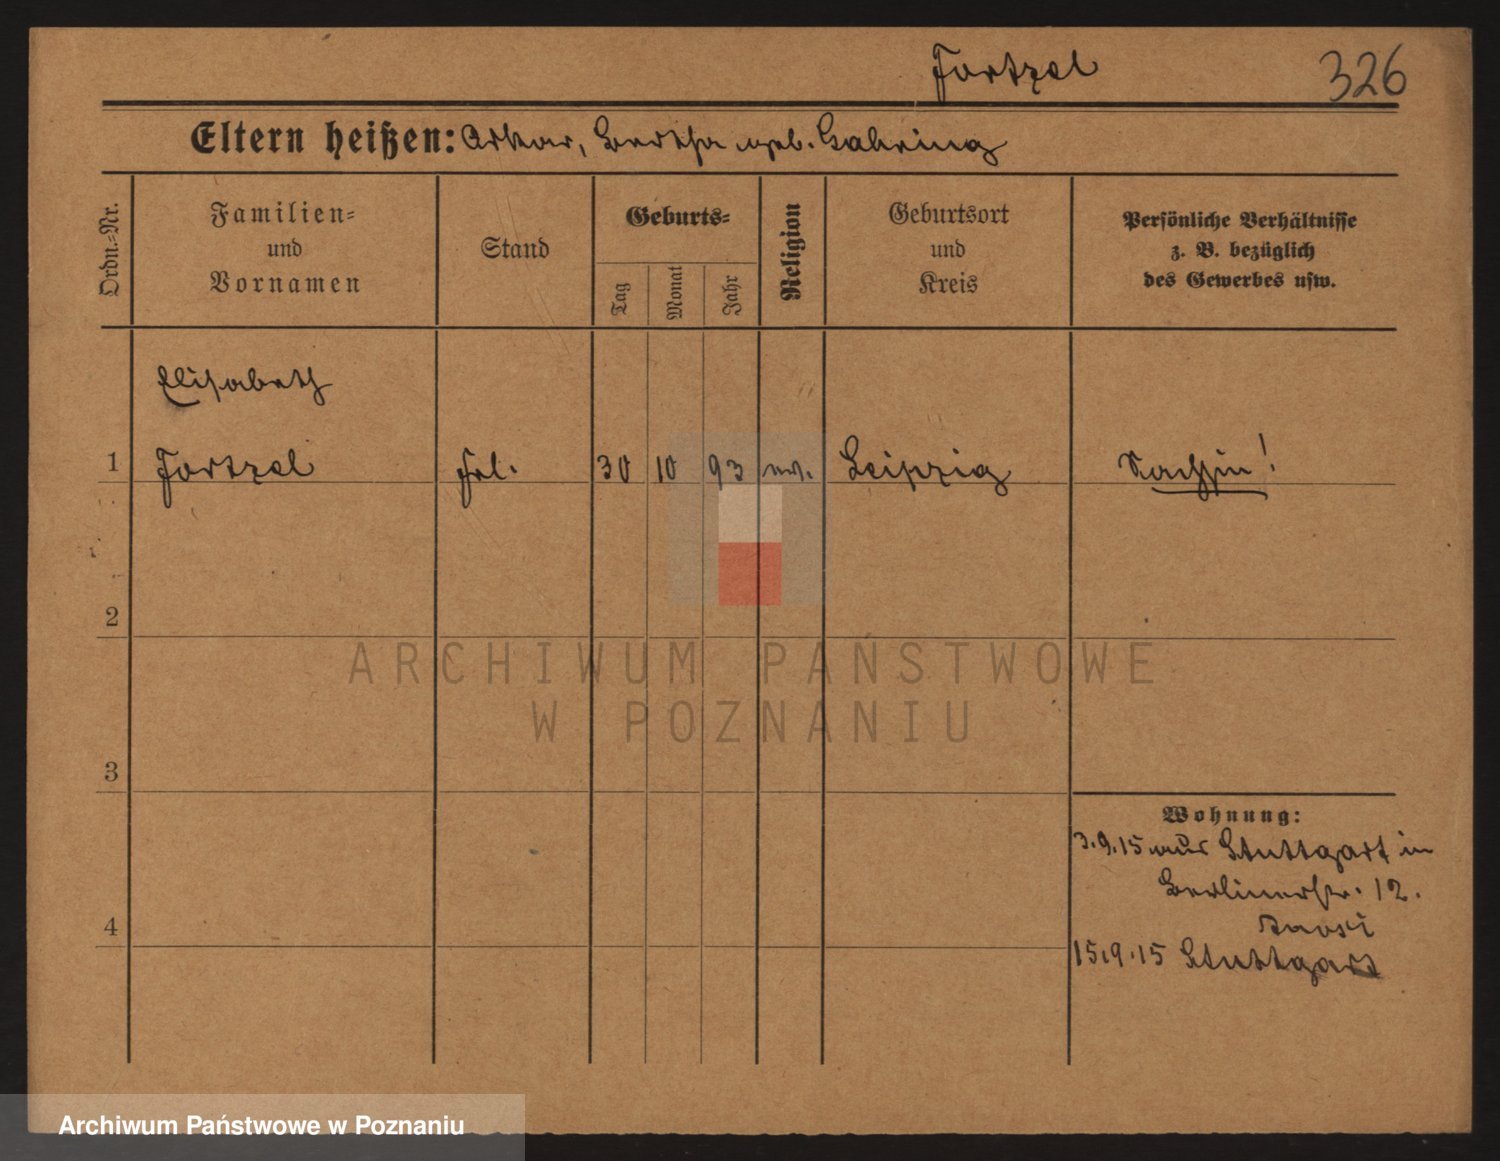 Fortzel 326
Eltern heißen: Oskar, Bertha geb. Gabring
Ordn.-Nr.
Familien-
und
Vornamen
Stand
Geburts-
Tag
Monat
Jahr
Religion
Geburtsort
und
Kreis
Persönliche Verhältnisse
z. B. bezüglich
des Gewerbes usw.
Elisabeth
1 Fortzel Frl. 30 10 93 ev. Leipzig Sachsin!
2
ARCHIWUM PAŃSTWOWE
W POZNANIU
3
Wohnung:
3.9.15 aus Stuttgart in
Berlinerstr. 12.
4
15.9.15 Stuttgart
Archiwum Państwowe w Poznaniu